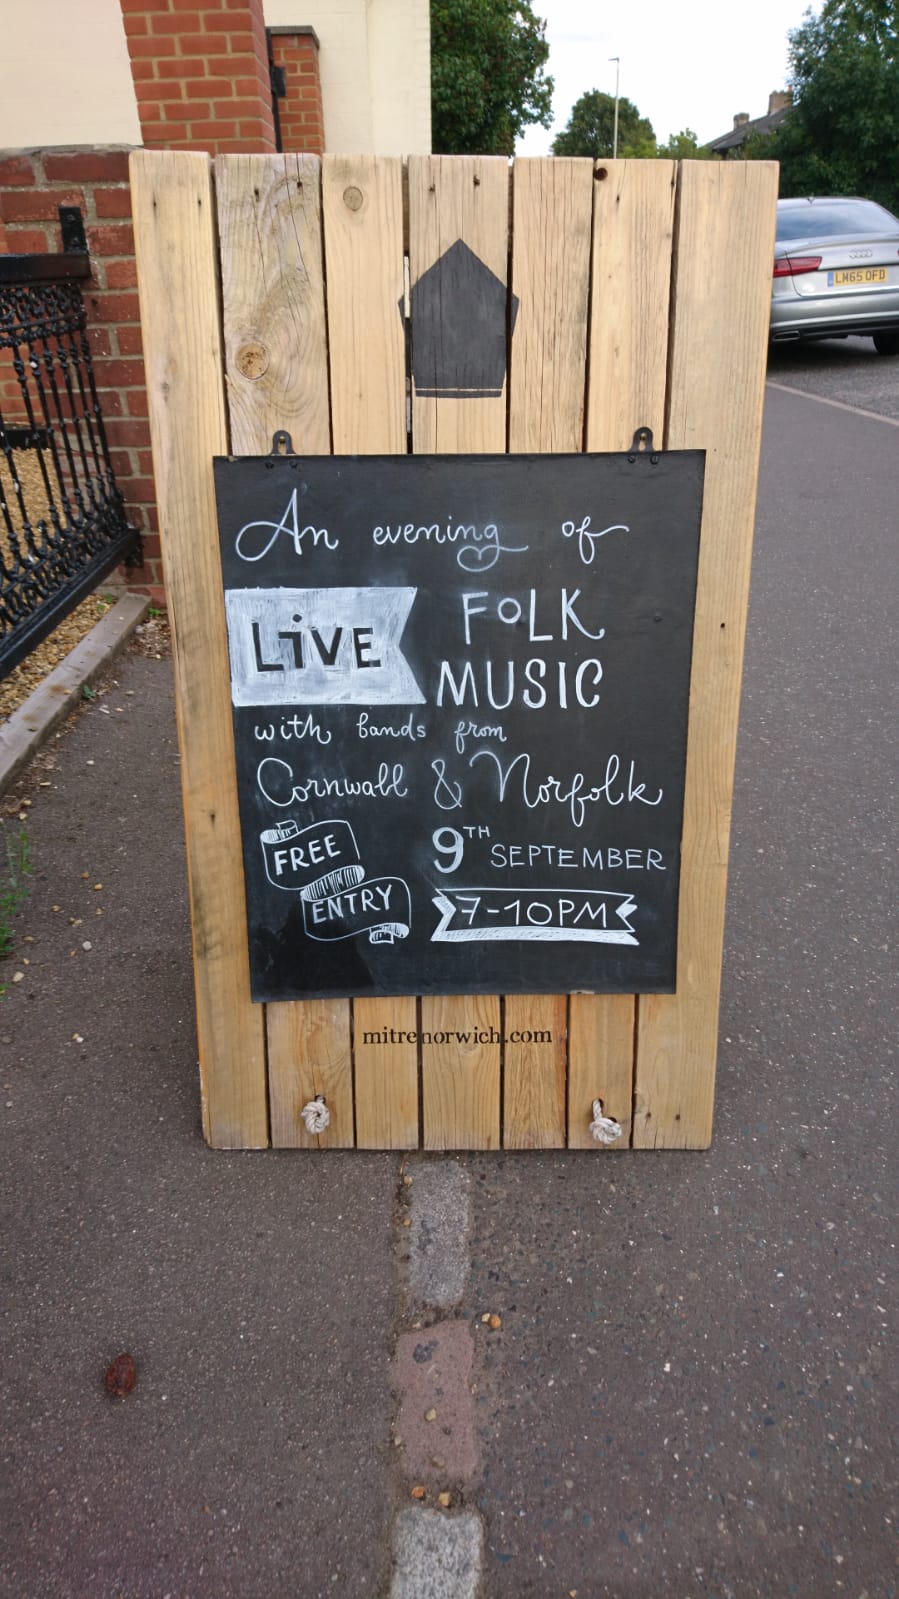 An evening of
LiVE
FOLK
MUSIC
with bands from
Cornwall & Norfolk
FREE
ENTRY
9TH SEPTEMBER
7-10PM
mitrenorwich.com
LM65 OFD